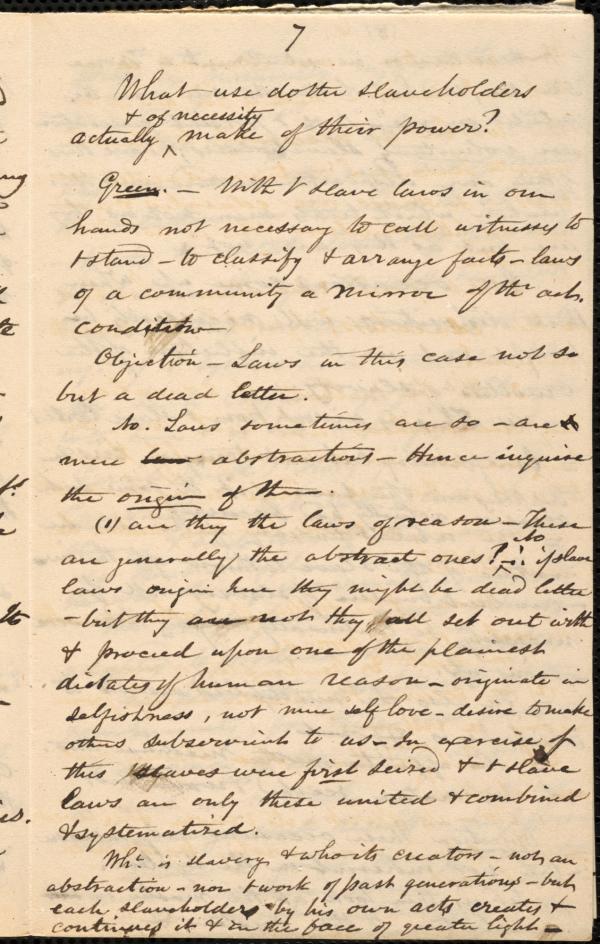 7
What use do the slaveholders
& of necessity
actually ^ make of their power?
Green. — With t slave laws in our
hands not necessary to call witnesses to
t stand – to classify & arrange facts – laws
of a community a mirror of tht acts.
condition
Objection – Laws in this case not so
but a dead letter.
No. Laws sometimes are so – are
mere abstractions – Hence inquire
the origin of them.
(1) are they the laws of reason – These
are generally the abstract ones? No if slave
laws origin here they might be dead letter
– but they are not they all set out with
& proceed upon one of the plainest
dictates of human reason – originate in
selfishness, not mere self love – desire to make
others subservient to us – In exercise of
this slaves were first seized & t slave
laws are only these united & combined
& systematized.
Wht is slavery & who its creators – not an
abstraction – nor t work of past generations – but
each slaveholder by his own acts creates &
continues it & in the face of greater light –